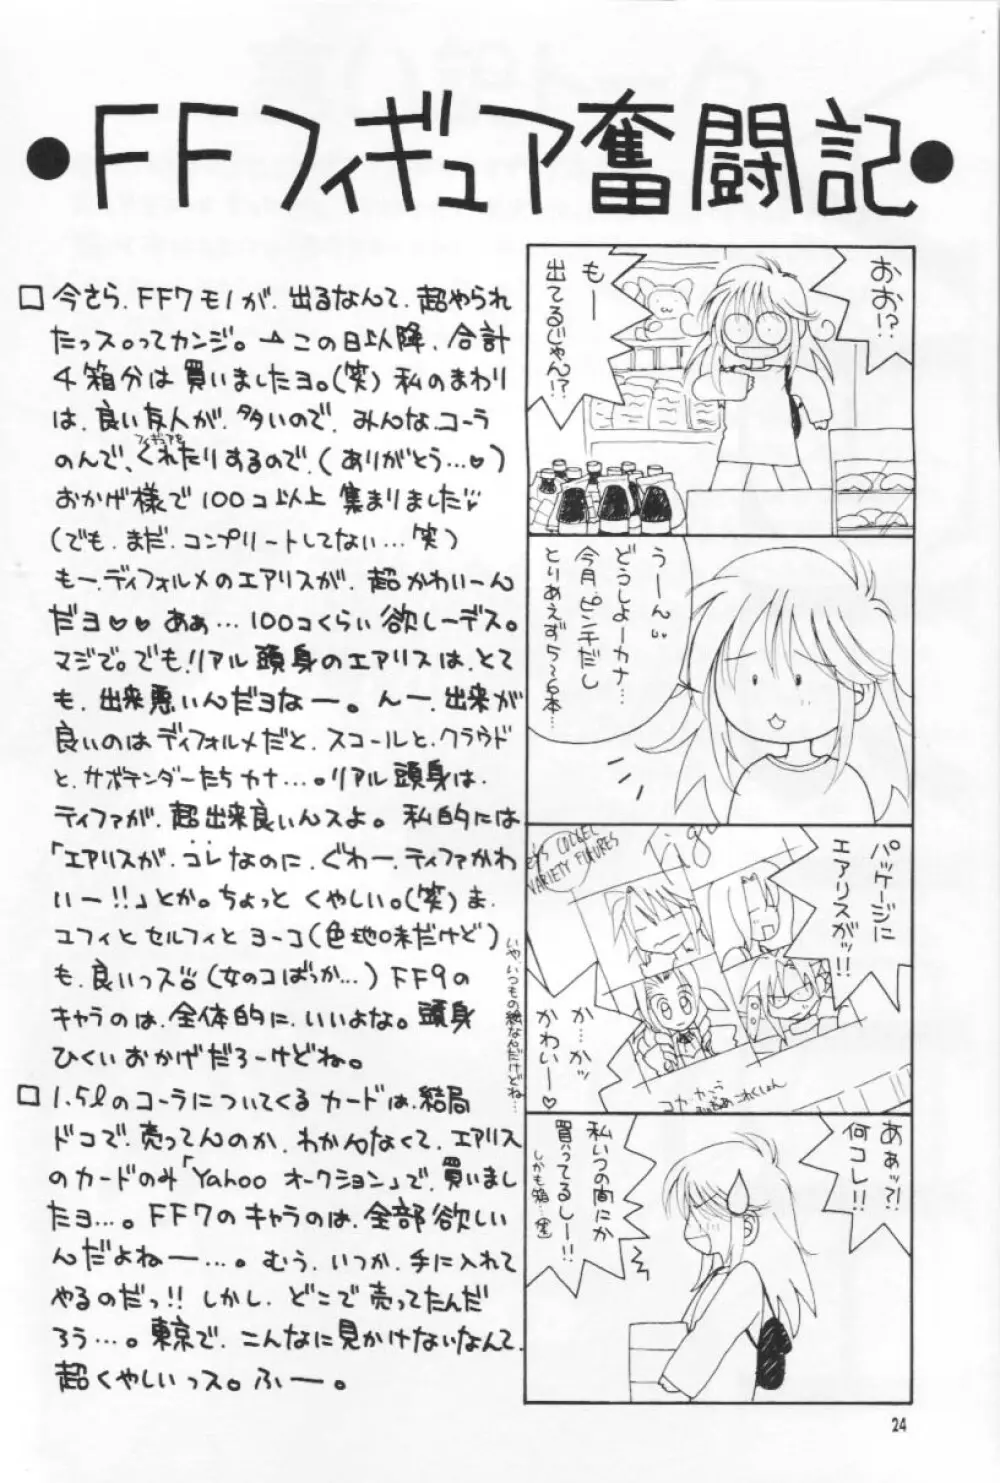 ・FFフィギュア奮闘記・
□ 今さら、FF7モノが、出るなんて、超やられ
たっス。ってカンジ。→この日以降、合計
4箱分は買いましたヨ。(笑) 私のまわり
は、良い友人が、多いので、みんな、コーラ
のんで、くれたりするので、(ありがとう…♥)
フィギュアを
おかげ様で100コ以上集まりました
(でも、まだ、コンプリートしてない…笑)
もー、ディフォルメのエアリスが、超かわいーん
だヨ♥♥ あぁ…100コくらい欲しーデス。
マジで。でも!リアル頭身のエアリスは、とて
も、出来悪いんだヨなー。んー、出来が
良いのはディフォルメだと、スコールと、クラウド
と、サボテンダーたちカナ…。リアル頭身は、
ティファが、超出来良いんスよ。私的には
「エアリスが、コレなのに、ぐわー、ティファかわ
いー!!」とか。ちょっとくやしい。(笑) ま、
ユフィとセルフィとヨーコ(色地味だけど)
も、良いっス (女のコばっか…) FF9の
キャラのは、全体的に、いいよな。頭身
ひくいおかげだろーけどね。
いや、いつもの絵なんだけどね…
□ 1.5ℓのコーラについてくるカードは、結局
ドコで、売ってんのか、わかんなくて、エアリス
のカードのみ「Yahooオークション」で、買いまし
たヨ…。FF7のキャラのは、全部欲しい
んだよねー…。むう、いつか、手に入れて
やるのだっ!! しかし、どこで売ってたんだ
ろう…。東京で、こんなに見かけないなんて、
超くやしいっス。ふー。
おお!?
もー
出てるじゃん!?
うーん
どうしよーカナ…
今月、ピンチだし
とりあえず5〜6本…
パッケージに
エアリスがッ!!
VARIETY FIGURES
か…かッ
かわいー♥
あぁッ?!
何コレ!!
私いつの間にか
買ってるしー!!
しかも箱…(笑)
24